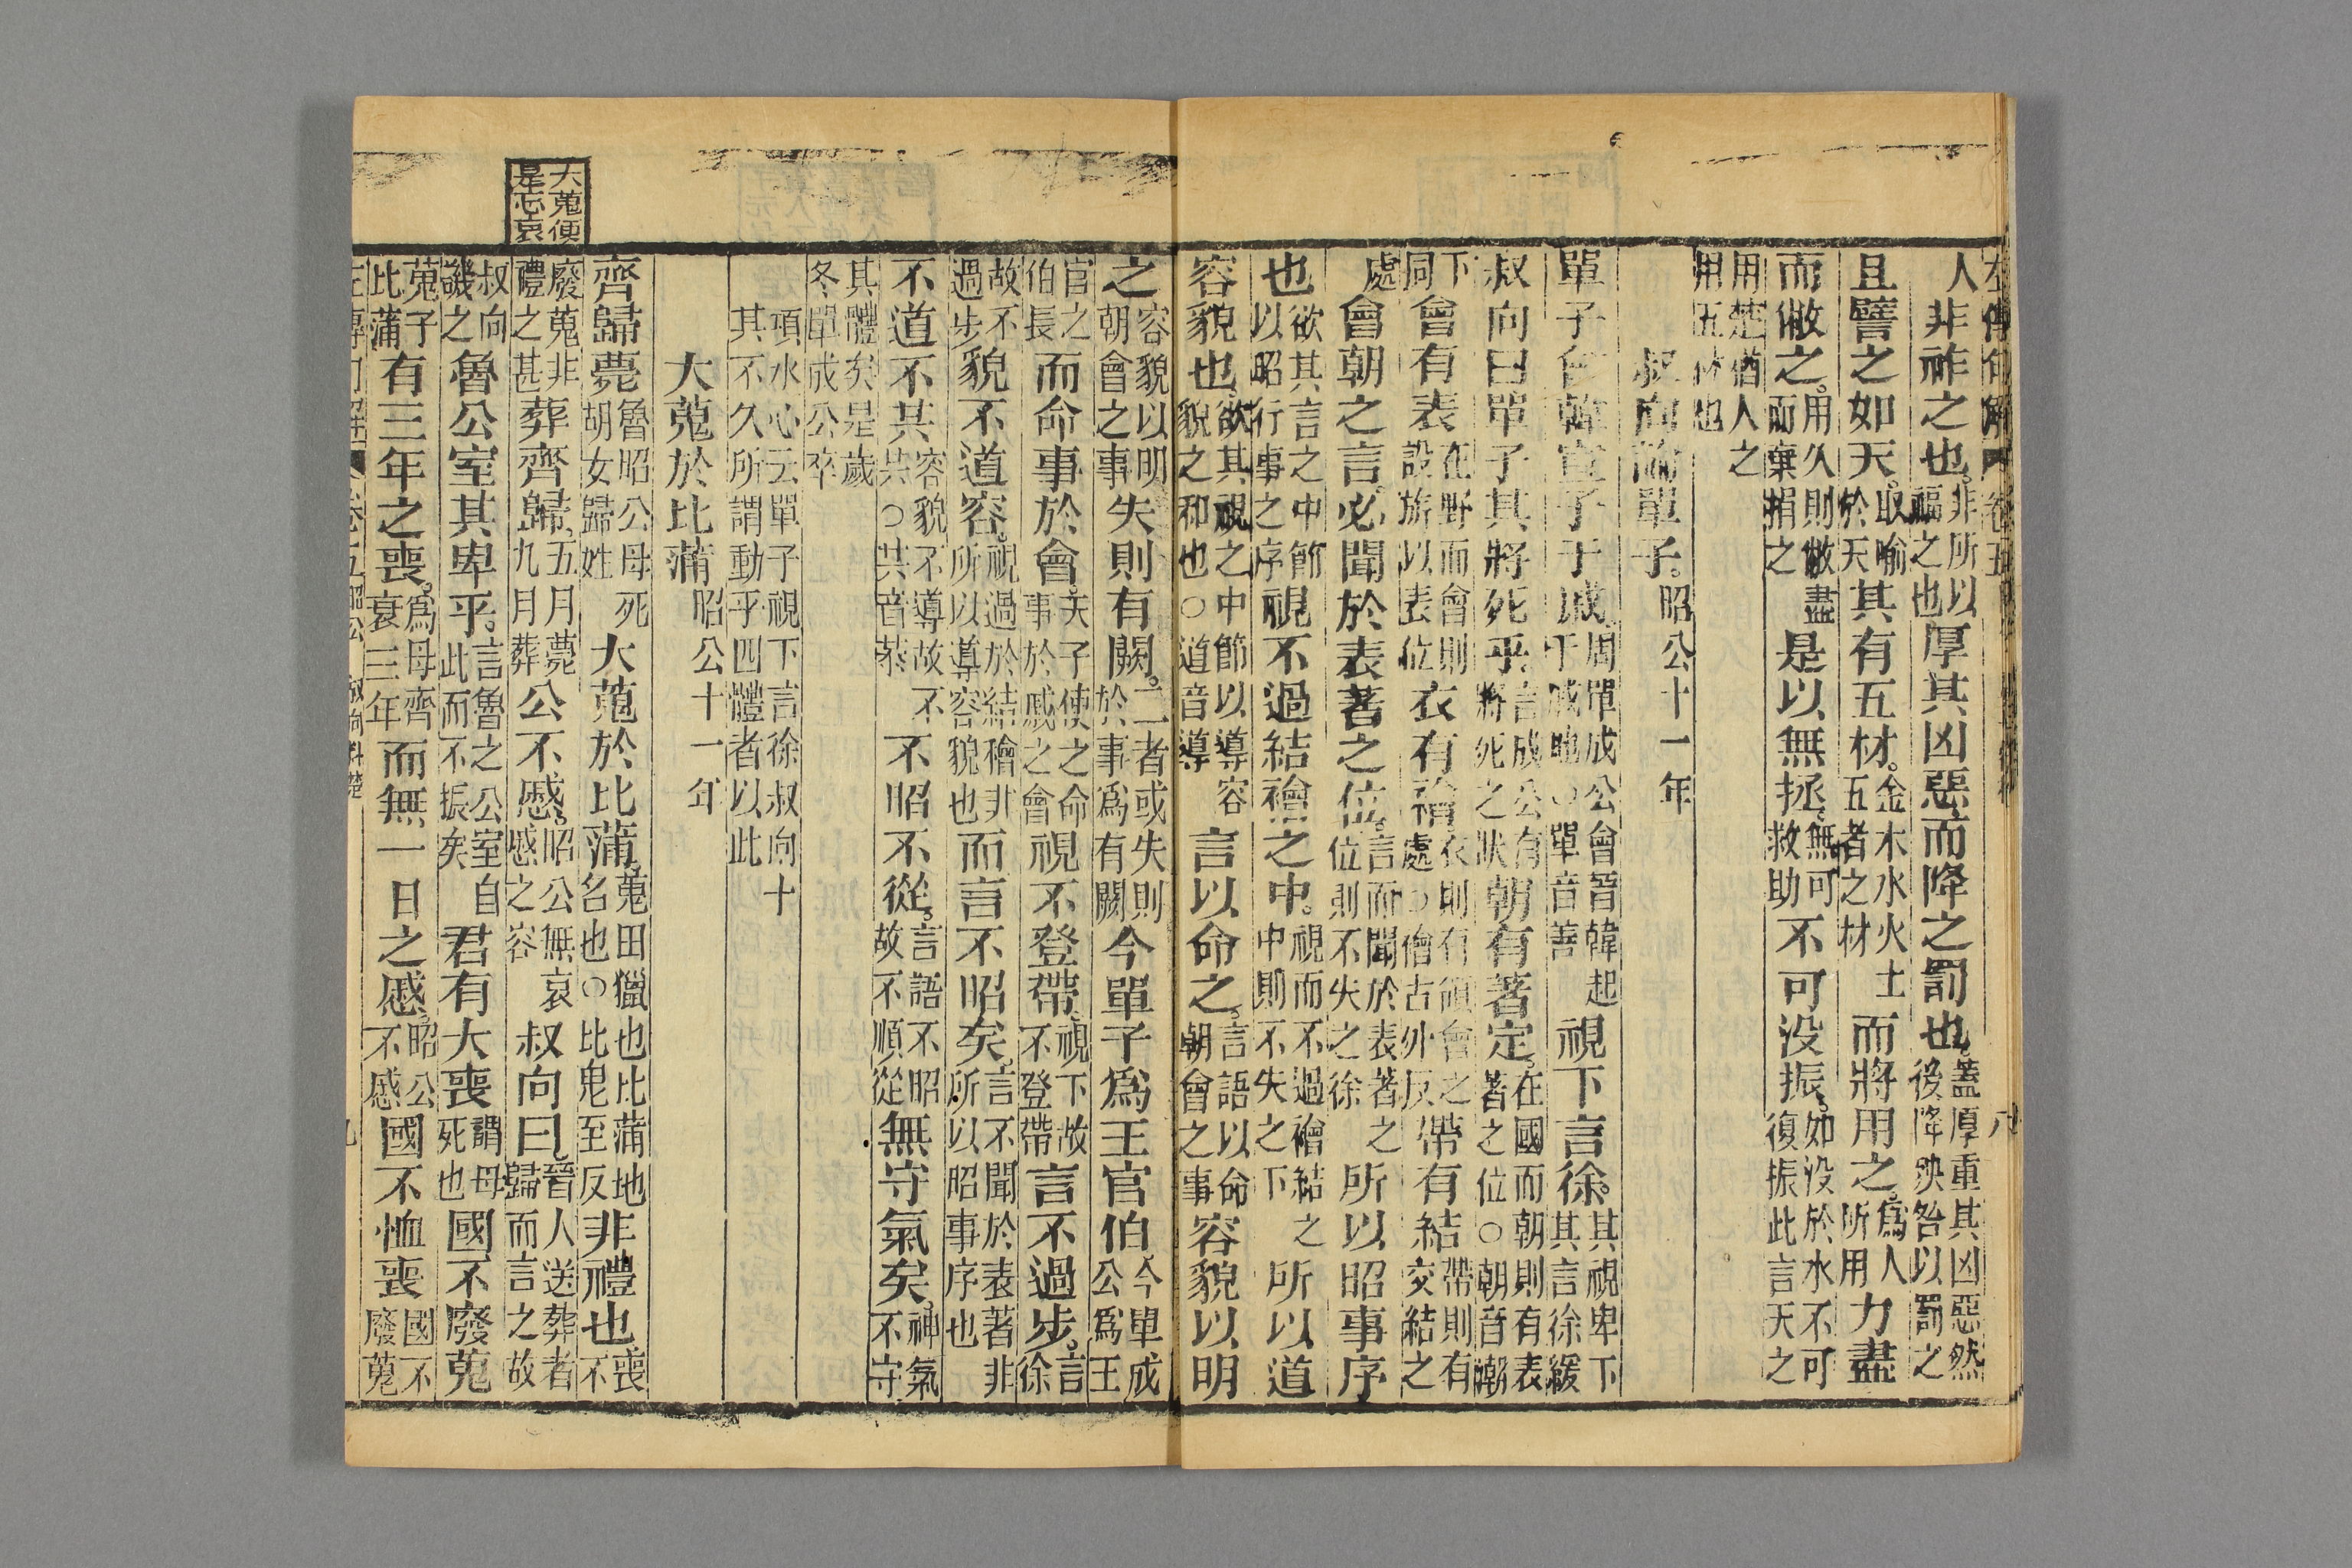 左傳句解 卷五 八
人非祚之也非所以福之也厚其凶惡而降之罰也蓋厚重其凶惡然後降殃咎以罰之
且譬之如天取喻於天其有五材金木水火土五者之材而將用之為人所用力盡
而敝之用久則敝盡而棄捐之是以無拯無可救助不可没振如没於水不可復振此言天之
用楚猶人之用五材也
叔向論單子昭公十一年
單子會韓宣子于戚周單成公會晉韓起于戚地○單音善視下言徐其視卑下其言徐緩
叔向曰單子其將死乎言成公有將死之狀朝有著定在國而朝則有表著之位○朝音潮
下同會有表在野而會則設旂以表位衣有襘衣則有領會之處○襘古外反帶有結帶則有交結之
處會朝之言必聞於表著之位言而聞於表著之位則不失之徐所以昭事序
也欲其言之中節以昭行事之序視不過結襘之中視而不過襘結之中則不失之下所以道
容貌也欲其視之中節以導容貌之和也○道音導言以命之言語以命朝會之事容貌以明
之容貌以明朝會之事失則有闕二者或失則於事為有闕今單子爲王官伯今單成公爲王
官之伯長而命事於會天子使之命事於戚之會視不登帶視下故不登帶言不過步言徐
故不過步貌不道容視過於結襘非所以導容貌也而言不昭矣言不聞於表著非所以昭事序也
不道不共容貌不導故不共○共音恭不昭不從言語不昭故不順從無守氣矣神氣不守
其體矣是歲冬單成公卒
項水心云單子視下言徐叔向十其不久所謂動乎四體者以此
大蒐於比蒲昭公十一年
齊歸薨魯昭公母死胡女歸姓大蒐於比蒲蒐田獵也比蒲地名也○比毘至反非禮也喪不
廢蒐非禮之甚葬齊歸五月薨九月葬公不慼昭公無哀慼之容叔向曰晉人送葬者歸而言之故
叔向譏之魯公室其卑乎言魯之公室自此而不振矣君有大喪謂母死也國不廢蒐
蒐于比蒲有三年之喪爲母齊衰三年而無一日之慼昭公不慼國不恤喪國不廢蒐
大蒐便
是忘哀
左傳句解 卷五 昭公 叔向料楚 九